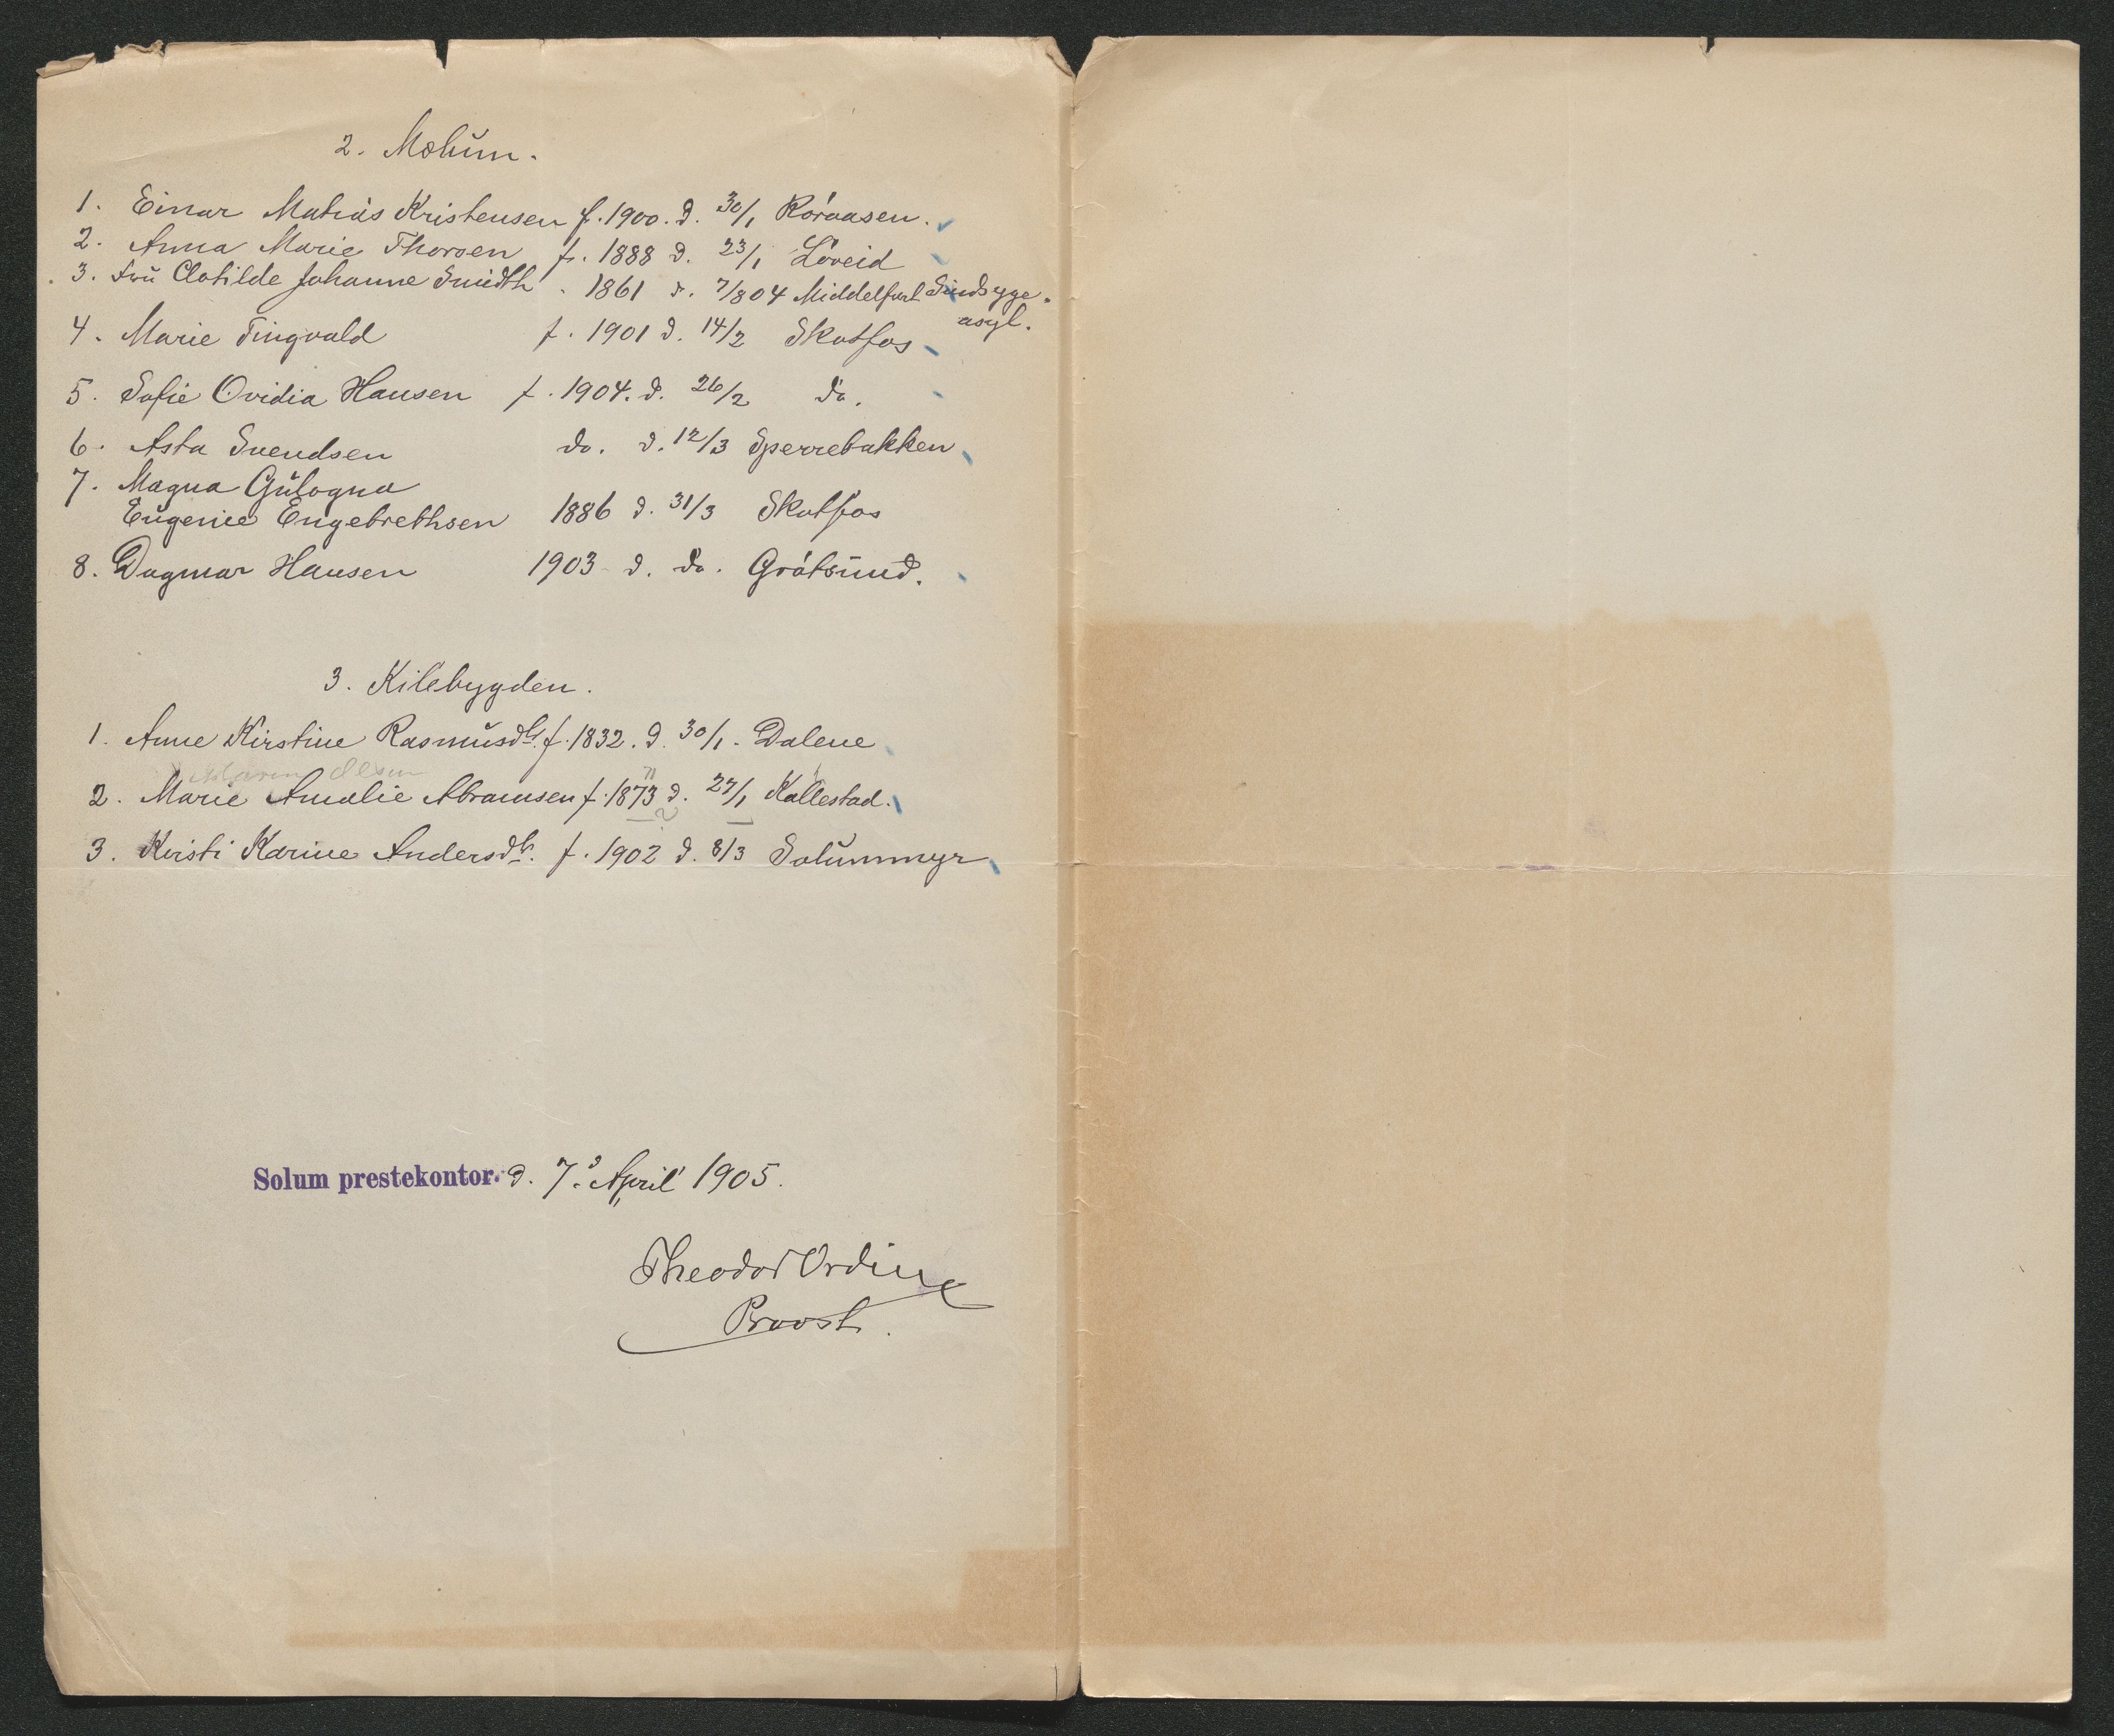 2. Mælum.
1. Einar Matias Kristensen f. 1900. d. 30/1 Röraasen.
2. Anna Marie Thorsen f. 1888 d. 23/1 Löveid
3. Fru Clotilde Johanne Smidth 1861 d. 7/8 04 Middelfart Sindsyge-
asyl.
4. Marie Tingvald f. 1901 d. 14/2 Skotfos
5. Sofie Ovidia Hansen f. 1904. d. 26/2 do.
6. Asta Svendsen do. d. 12/3 Sperrebakken
7. Magna Gulogna
Eugenie Engebrethsen 1886 d. 31/3 Skotfos
8. Dagmar Hansen 1903 d. do. Gråtsund.
3. Kilebygden.
1. Anne Kirstine Rasmusdtr. f. 1832. d. 30/1. Dalene
Olsen
2. Marie Amalie Abramsen f. 1873 d. 27/1 Kallestad.
3. Kirsti Karine Andersdtr. f. 1902 d. 8/3 Solummyr
Solum prestekontor. d. 7. April 1905.
Theodor Ording
Provst.